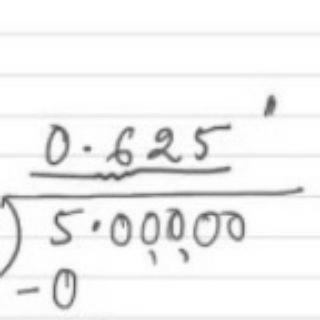 0.625
)5.00000
-0